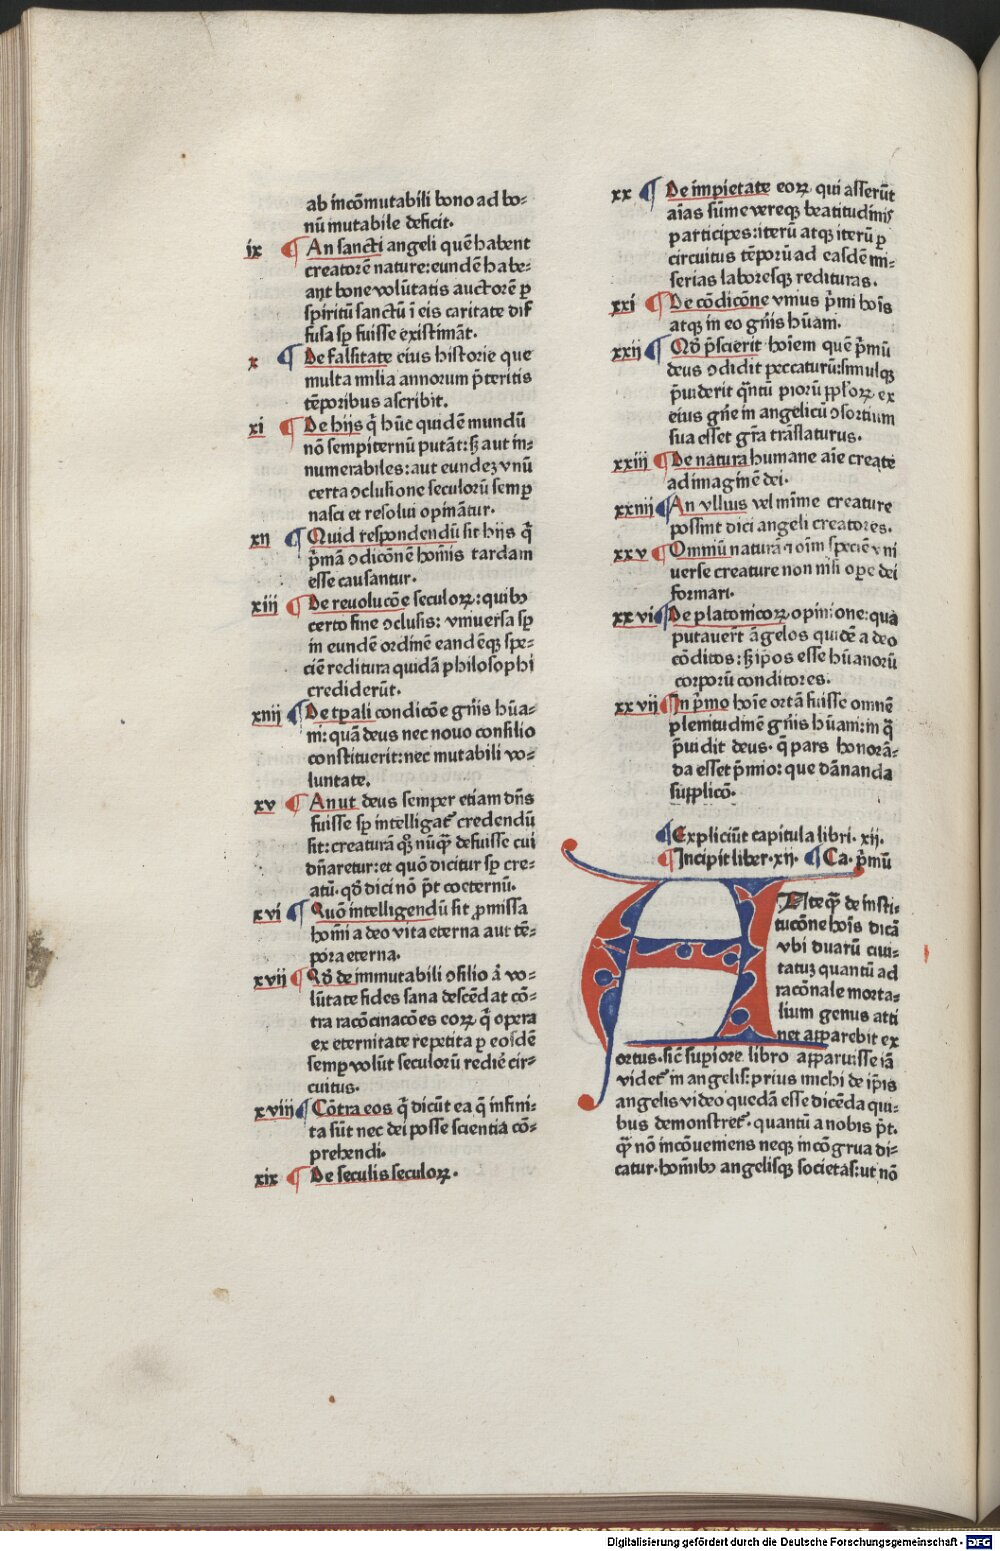 ab incōmutabili bono ad bo⸗
nū mutabile deficit.
ix ¶ An sancti angeli quē habent
creatorē nature: eundē habe⸗
ant bone volūtatis auctorē ꝑ
spiritū sanctū ī eis caritate dif
fusa sꝑ fuisse existimāt.
x ¶ De falsitate eius historie que
multa milia annorum p̄teritis
tēporibus ascribit.
xi ¶ De hijs q̄ hūc quidē mundū
nō sempiternū putāt: sꝫ aut in⸗
numerabiles: aut eundeꝫ vnū
certa ↄclusione seculorū semꝑ
nasci et resolui opināntur.
xii ¶ Quid respondendū sit hijs q̄
p̄mā ↄdicōnē hoīnis tardam
esse causantur.
xiii ¶ De reuolucōe seculoꝝ: quibꝰ
certo fine ↄclusis: vniuersa sꝑ
in eundē ordinē eandēqꝫ spe⸗
ciē reditura quidā philosophi
crediderūt.
xiiii ¶ De tꝑali condicōe gn̄is hūa⸗
ni: quā deus nec nouo consilio
constituerit: nec mutabili vo⸗
luntate.
xv ¶ An ut deus semper etiam dn̄s
fuisse sꝑ intelligat᷑ credendū
sit: creatura qꝫ nūqꝫ̄ defuisse cui
dn̄aretur: et quō dicitur sꝑ cre⸗
atū. qō dici nō p̄t coeternū.
xvi ¶ Quō intelligendū sit ꝓmissa
hoīni a deo vita eterna aut tē⸗
pora eterna.
xvii ¶ Qō de immutabili ↄsilio aut vo⸗
lūtate fides sana descēdat cō⸗
tra racōcinacōes eoꝝ q̄ opera
ex eternitate repetita ꝑ eosdē
semꝑ volūt seculorū rediē cir⸗
cuitus.
xviii ¶ Cōtra eos q̄ dicūt ea q̄ infini⸗
ta sūt nec dei posse scientia cō⸗
prehendi.
xix ¶ De seculis seculoꝝ.
xx ¶ De impietate eoꝝ qui asserūt
aīas sūme vereqꝫ beatitudinis
participes: iterū atqꝫ iterū ꝑ
circuitus tēporū ad easdē mi⸗
serias laboresqꝫ redituras.
xxi ¶ De cōdicōne vnius p̄mi hoīs
atqꝫ in eo gn̄is hūani.
xxii ¶ Qō p̄scierit hoīem quē p̄mū
deus ↄdidit peccaturū: simulqꝫ
p̄uiderit qn̄tū piorū ppl'oꝝ ex
eius gn̄e in angelicū ↄsortium
sua esset gr̄a trāslaturus.
xxiii ¶ De natura humane aīe create
ad imaginē dei.
xxiiii ¶ An vllius vel mīme creature
possint dici angeli creatores.
xxv ¶ Omniū naturā ⁊ oīm speciē vni
uerse creature non nisi oꝑe dei
formari.
xxvi ¶ De platonicoꝝ opinione: qua
putauer̄t āgelos quidē a deo
cōditos: sꝫ ip̄os esse hūanorū
corporū conditores.
xxvii ¶ In p̄mo hoīe ortā fuisse omnē
plenitudinē gn̄is hūani: in q̄
p̄uidit deus. q̄ pars honorā⸗
da esset p̄mio: que dānanda
supplicō.
¶ Expliciūt capitula libri. xii.
¶ Incipit liber. xii. ¶ Ca. p̄mū
A Nteqꝫ̄ de insti⸗
tucōne hoīs dicā
vbi duarū ciui⸗
tatuꝫ quantū ad
racōnale morta⸗
lium genus atti
net apparebit ex
ortus. sic̄ suꝑiore libro apparuisse iā
videt᷑ in angelis: prius michi de ip̄is
angelis video quedā esse dicēda qui⸗
bus demonstret᷑. quantū a nobis p̄t.
qꝫ̄ nō incōueniens neqꝫ incōgrua di⸗
catur. hoīnibꝰ angelisqꝫ societas: ut nō
Digitalisierung gefördert durch die Deutsche Forschungsgemeinschaft - DFG